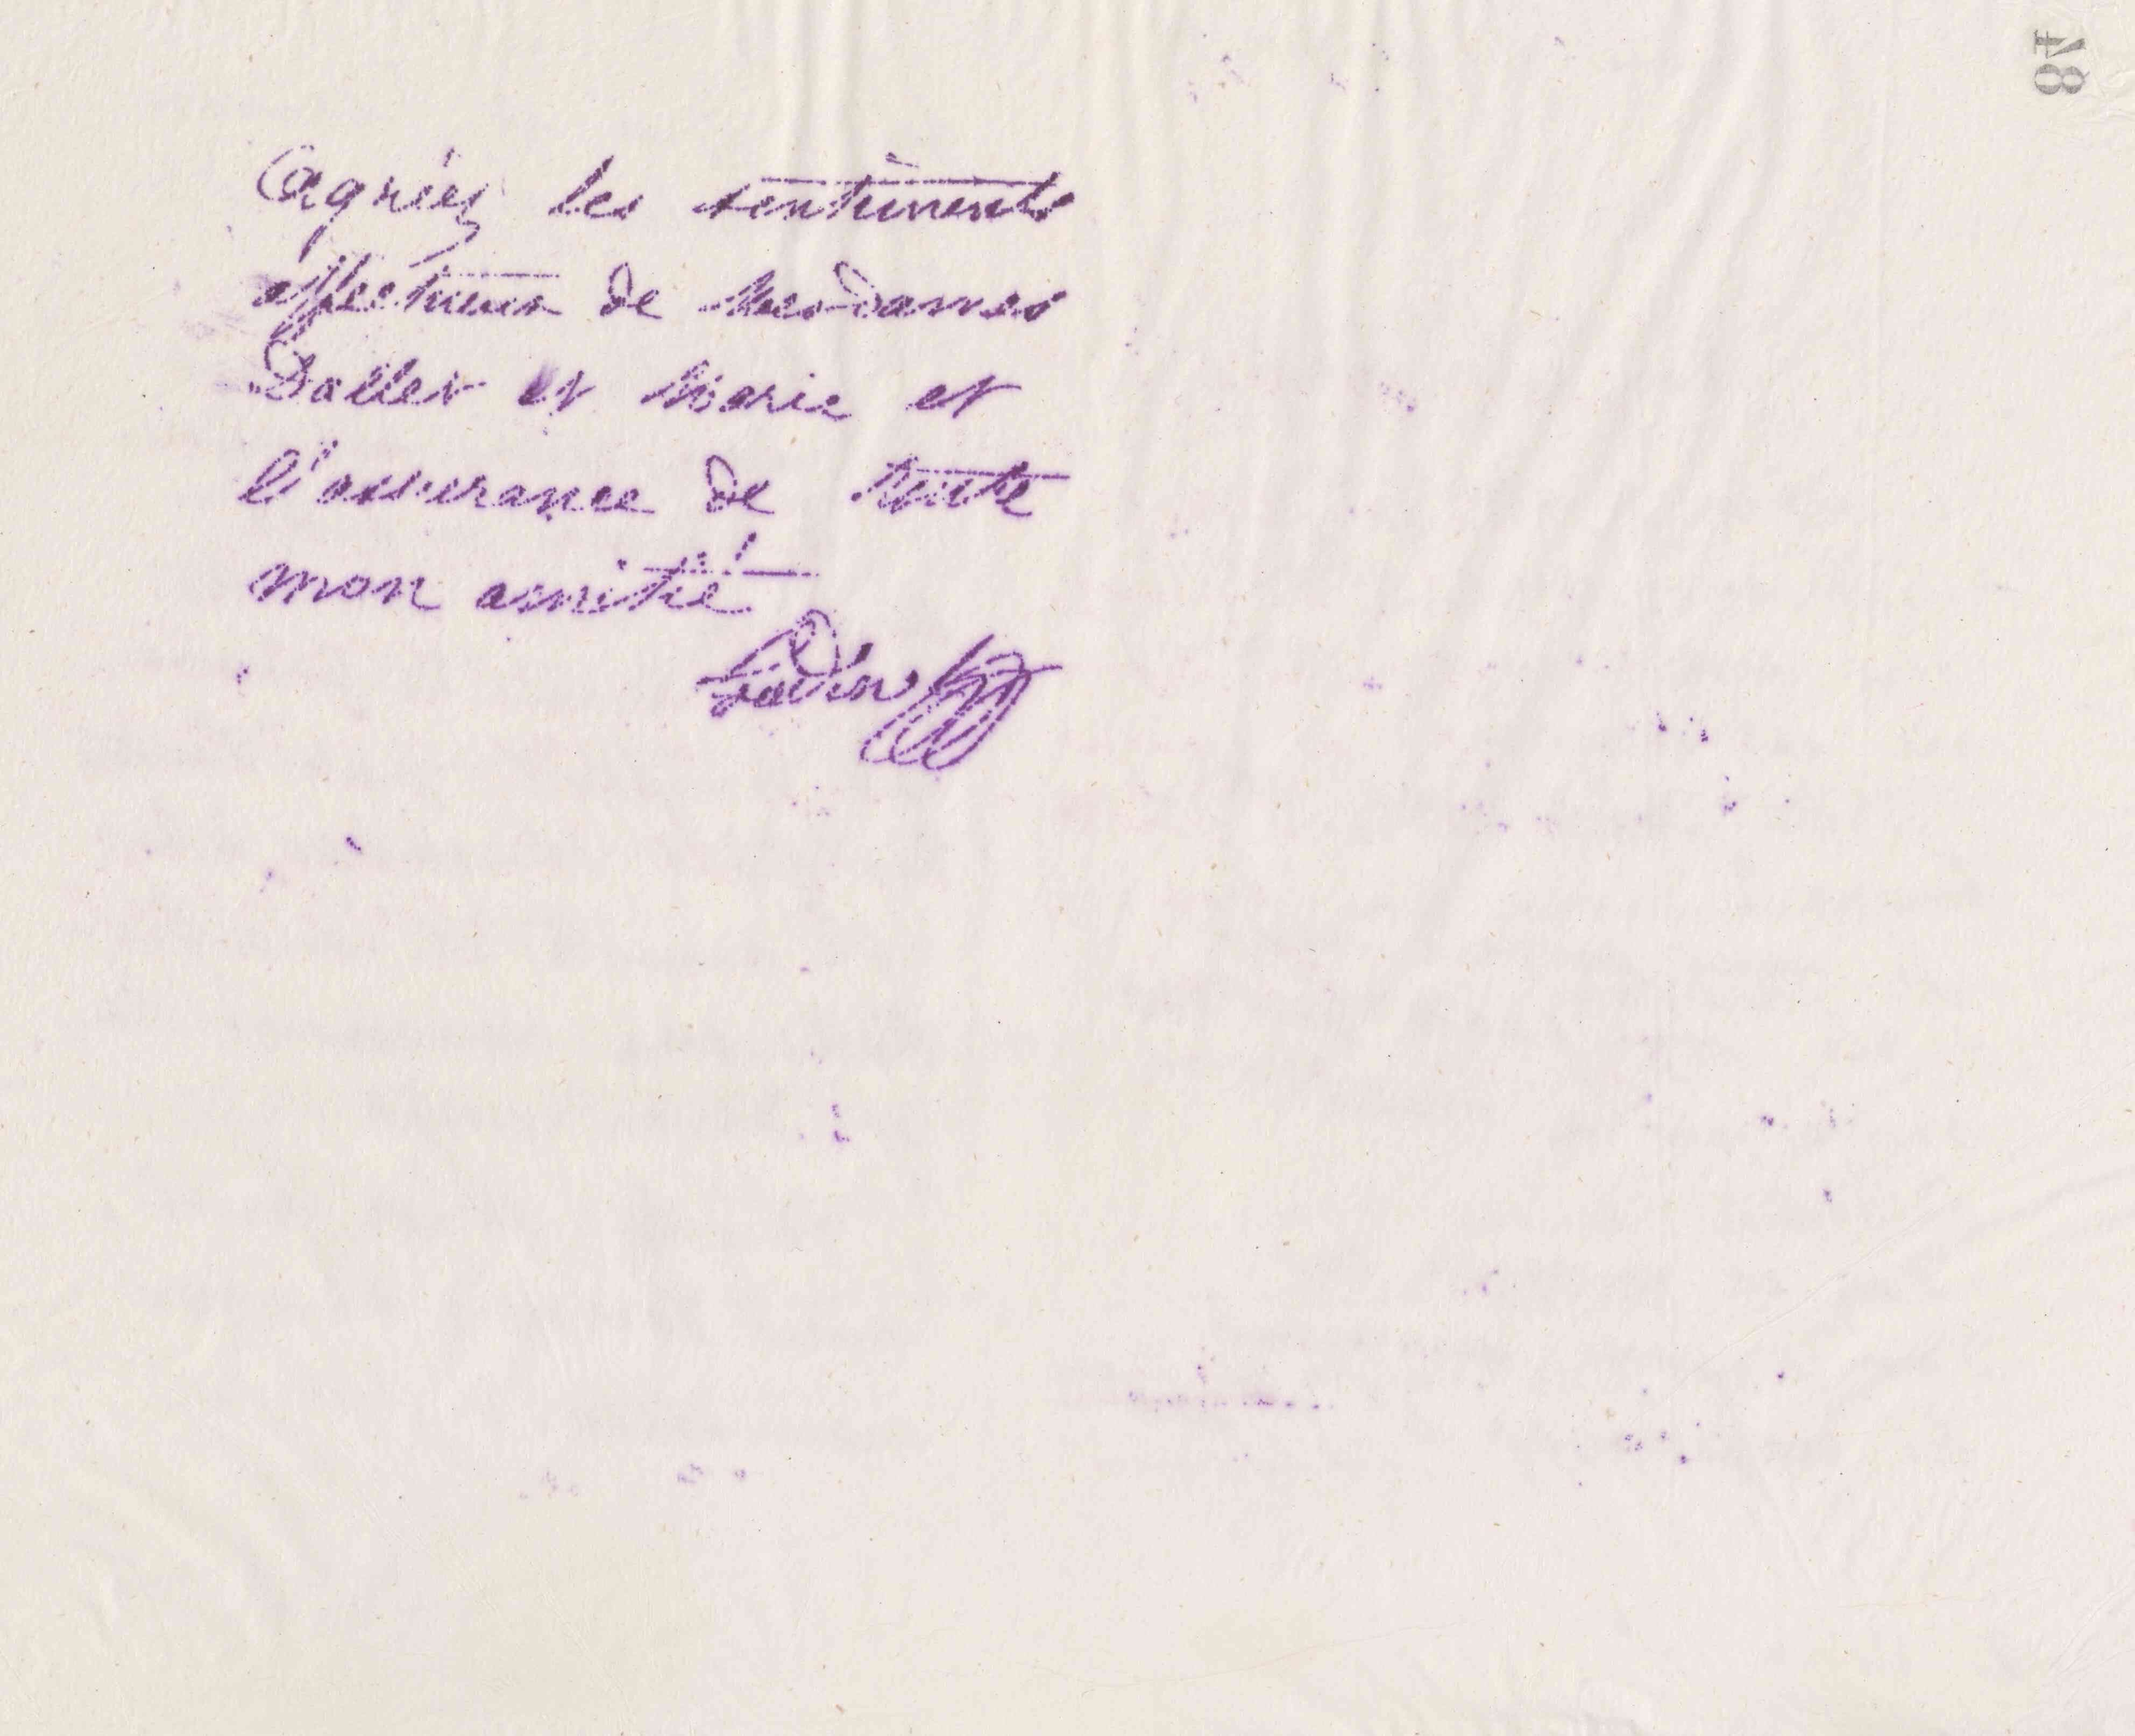 48
agréez les sentiments
affectueux de Mesdames
Dallet et Marie et
l'assurance de toute
mon amitié
Godin